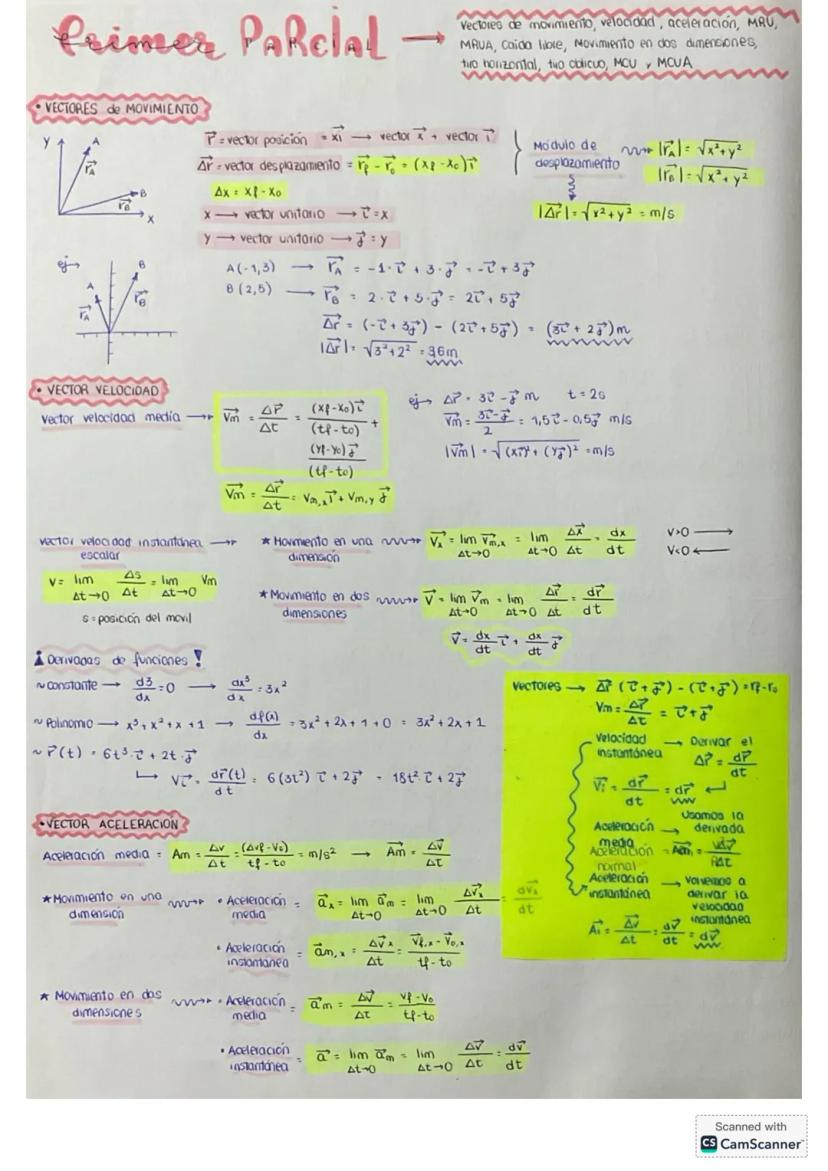 Primer PARCIAL →
PARCIAL
Vectores de movimiento, velocidad, aceleración, MRU,
MRUA, caída libre, Movimiento en dos dimensiones,
tiro horizontal, tiro oblicuo, MCU y MCUA
• VECTORES de MOVIMIENTO
Y A r⃗A B r⃗B X
r⃗ = vector posición = xi⃗ → vector x⃗ + vector i⃗
Δr⃗ = vector desplazamiento = r⃗f - r⃗o = (xf - xo)i⃗
Δx = xf - xo
x → vector unitario → i⃗ = x
y → vector unitario → j⃗ = y
Módulo de desplazamiento → |r⃗A| = √x²+y²
|r⃗B| = √x²+y²
|Δr⃗| = √x²+y² = m/s
ej→ A r⃗A B r⃗B
A(-1,3) → r⃗A = -1·i⃗ + 3·j⃗ = -i⃗ + 3j⃗
B(2,5) → r⃗B = 2·i⃗ + 5·j⃗ = 2i⃗ + 5j⃗
Δr⃗ = (-i⃗ + 3j⃗) - (2i⃗ + 5j⃗) = (3i⃗ + 2j⃗)m
|Δr⃗| = √3²+2² = 3,6m
• VECTOR VELOCIDAD
Vector velocidad media → V⃗m = Δr⃗/Δt = (xf-xo)i⃗/(tf-to) + (yf-yo)j⃗/(tf-to)
V⃗m = Δr⃗/Δt = Vm,x i⃗ + Vm,y j⃗
ej→ Δr⃗ = 3i⃗ - j⃗ m t = 2s
V⃗m = 3i⃗-j⃗/2 = 1,5i⃗ - 0,5j⃗ m/s
|V⃗m| = √(xi⃗)² + (yj⃗)² = m/s
Vector velocidad instantánea →
escalar
V = lim Δt→0 Δs/Δt = lim Δt→0 Vm
s = posición del movil
★ Movimiento en una dimensión → V⃗x = lim Δt→0 V⃗m,x = lim Δt→0 Δx⃗/Δt = dx/dt
V>0 →
V<0 ←
★ Movimiento en dos dimensiones → V⃗ = lim Δt→0 V⃗m = lim Δt→0 Δr⃗/Δt = dr⃗/dt
V⃗ = dx/dt i⃗ + dx/dt j⃗
¡Derivadas de funciones!
~ constante → d3/dx = 0 → dx³/dx = 3x²
~ Polinomio → x³ + x² + x + 1 → df(x)/dx = 3x² + 2x + 1 + 0 = 3x² + 2x + 1
~ r⃗(t) = 6t³·i⃗ + 2t·j⃗
↳ Vi⃗ = dr⃗(t)/dt = 6(3t²)i⃗ + 2j⃗ = 18t²·i⃗ + 2j⃗
Vectores → Δr⃗ (i⃗ + j⃗) - (i⃗ + j⃗) = rf - ro
Vm = Δr⃗/Δt = i⃗ + j⃗
Velocidad instantánea → Derivar el Δr⃗ = dr⃗/dt
V⃗i = dr⃗/dt = dr⃗ ↵
Aceleración media → Usamos la derivada
Aceleración normal = A⃗m
Aceleración instantánea → Volvemos a derivar la velocidad instantánea
A⃗i = Δv⃗/Δt = dv⃗/dt = dv⃗
• VECTOR ACELERACION
Aceleración media = Am = Δv/Δt = (Δvf-Vo)/tf-to = m/s² → A⃗m = Δv⃗/Δt
★ Movimiento en una dimensión → • Aceleración media = a⃗x = lim Δt→0 a⃗m = lim Δt→0 Δv⃗x/Δt = dvx/dt
• Aceleración instantánea = a⃗m,x = Δv⃗x/Δt = V⃗f,x - V⃗o,x/tf-to
★ Movimiento en dos dimensiones → • Aceleración media = a⃗m = Δv⃗/Δt = Vf-Vo/tf-to
• Aceleración instantánea = a⃗ = lim Δt→0 a⃗m = lim Δt→0 Δv⃗/Δt = dv⃗/dt
Scanned with
CS CamScanner